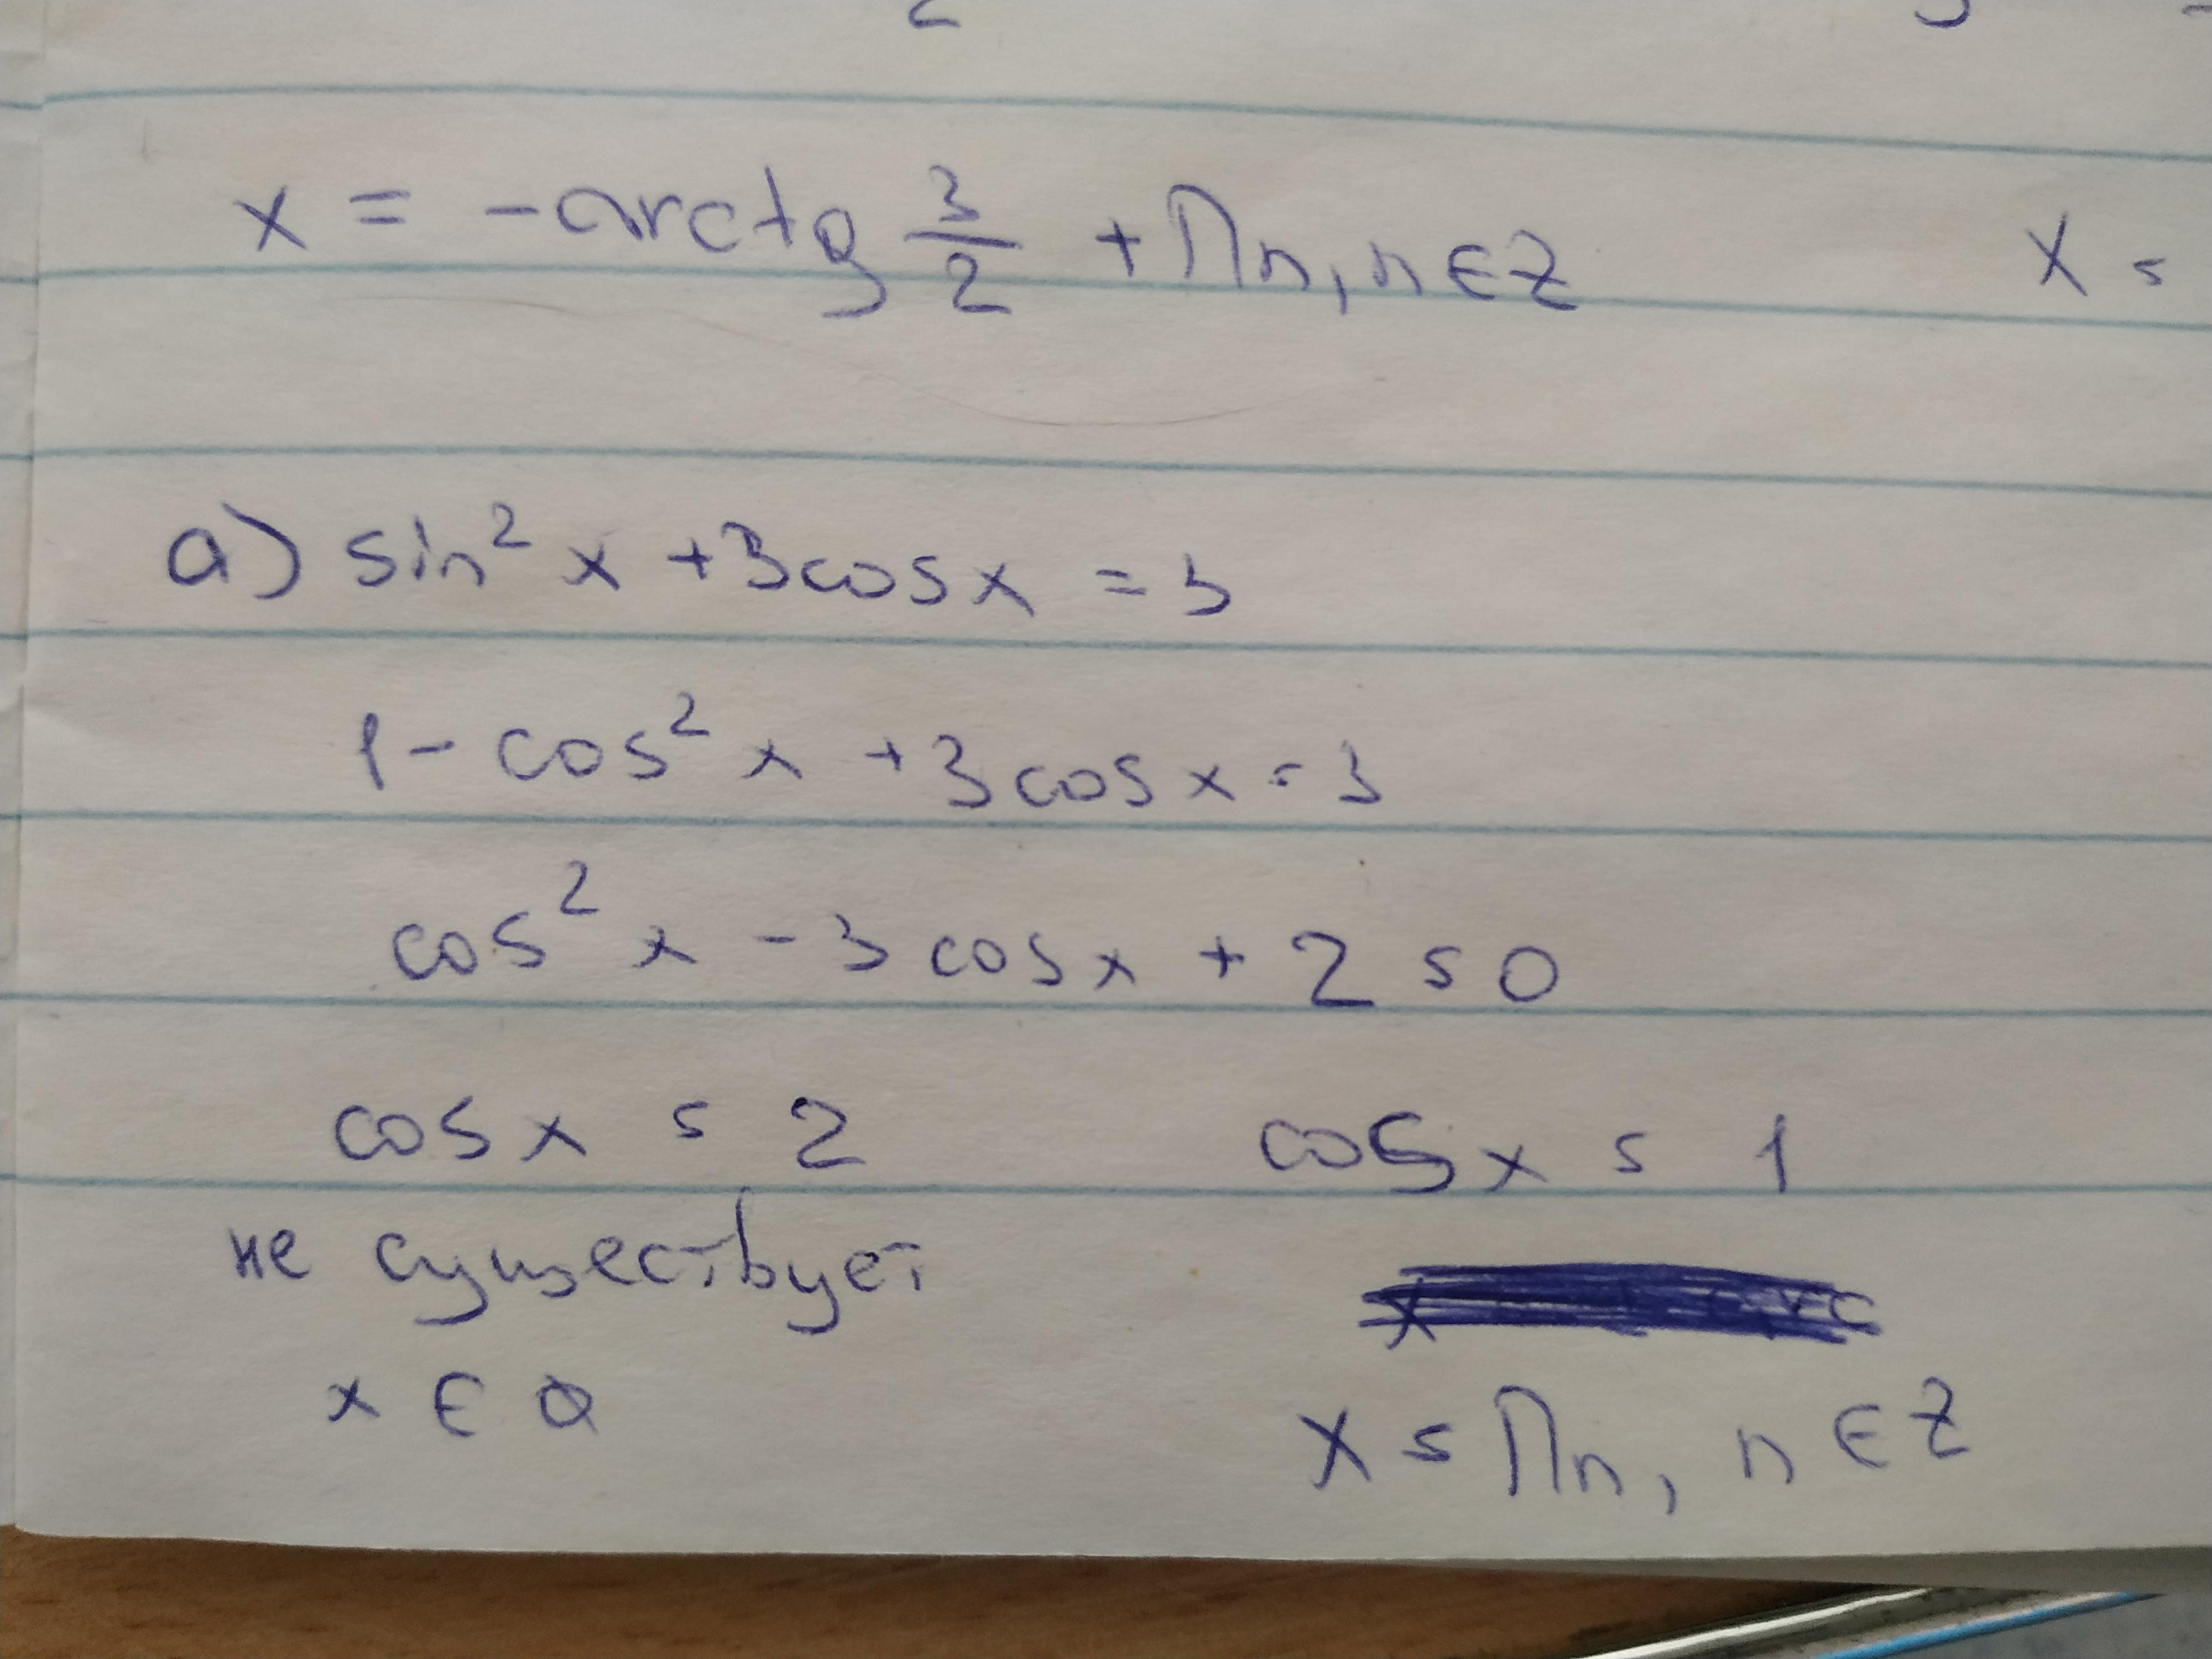 x = -arctg 3/2 + Πn, n ∈ Z x =
a) sin² x + 3cosx = 3
1 - cos² x + 3cosx = 3
cos² x - 3cosx + 2 = 0
cosx = 2 cosx = 1
не существует
x ∈ ∅ x = Πn, n ∈ Z